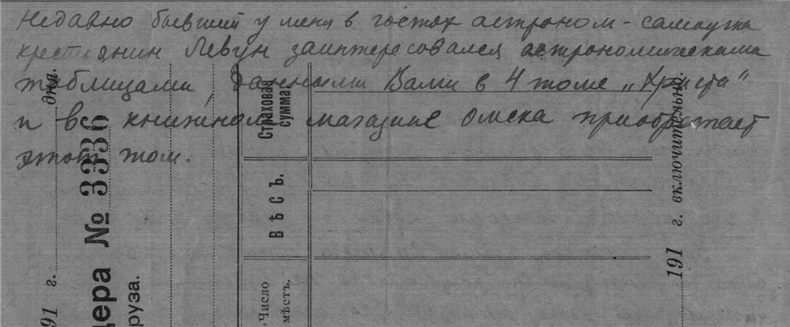 Недавно бывший у меня в гостях астроном-самоучка
крестьянин Левун заинтересовался астрономическими
таблицами, данными Вами в 4 томе „Христа“
и в книжном магазине Омска приобретает
этот том.
дня.
191 г.
дера № 3336
руза.
Страховая
сумма:
Вѣсъ.
Число
мѣстъ.
191 г. включительно.